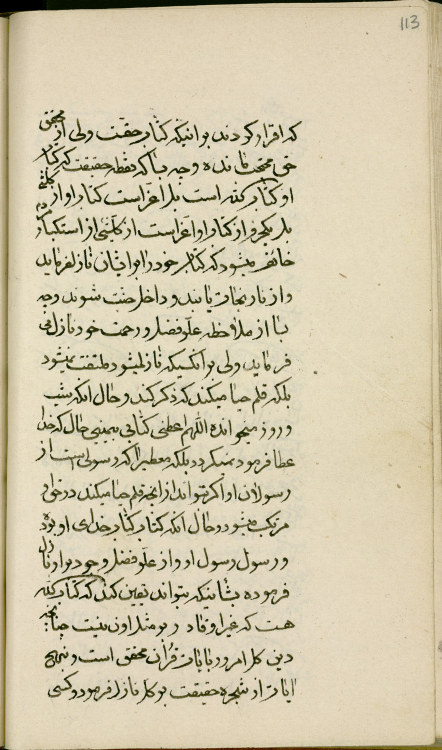 113
که اقرار کردند بر اینکه کتاب حقست ولی از محقق
حق محتجب مانده وچه بسا که نقطه حقیقت که کتاب
او کتاب الله است بل اعز است کتاب او از
بل یکحرف از کتاب او اعز است از کلشیء از استکبار
خائف میشود که کتاب خود را بر ایشان نازل فرماید
واز نار نجات یابند و داخل جنت شوند وچه
بسا از ملاحظه علو فضل و رحمت خود نازل می
فرماید ولی بر آنکسیکه نازل میشود ملتفت نمیشود
بلکه قلم حیا میکند که ذکر کند و حال آنکه شب
و روز میخوانده اللهم اعطنی کتابی بیمینی حال که خدا
عطا فرموده نمیگیرد بلکه معطیرا که رسولی است از
رسولان او اگر بتواند از آنچه قلم حیا میکند در حق او
مرتکب میشود و حال آنکه کتاب کتاب خدای او بوده
و رسول رسول او و از علو فضل وجود بر او نازل
فرموده بشأنیکه بتواند تعیین کند که کتاب الله
هست که غیر او قادر بر مثل اون نیست چنانچه
دین کل امروز بایات قرآن محقق است و بنهج
آیات از شجره حقیقت بر کل نازل فرموده و کسی